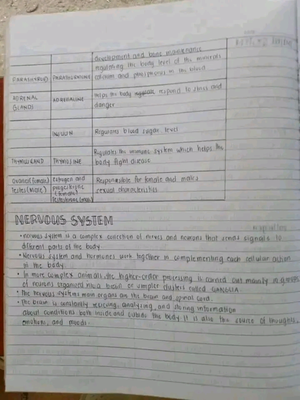 development and bone maintenance
regulating the body level of the minerals
PARATHYROID PARATHORMONE calcium and phosphorus in the blood
ADRENAL GLANDS ADRENALINE Helps the body respond to stress and danger
Regulates blood sugar level
Regulates the immune system which helps the body fight disease
Ovaries (female) testes (male) Estrogen and progesterone (female) testosterone (male) Responsible for female and male sexual characteristics
NERVOUS SYSTEM
• Nervous system is a complex collection of nerves and neurons that send signals to
different parts of the body
• Nervous system and hormones work together in complementing each cellular action
in the body.
• In more complex animals, the higher-order processing is carried out mainly in groups
of neurons organized into a brain or simpler clusters called GANGLIA
• The nervous system's main organs are the brain and spinal cord.
• The brain is constantly receiving, analyzing, and storing information
about conditions both inside and outside the body. It is also the source of thoughts,
emotions, and moods.